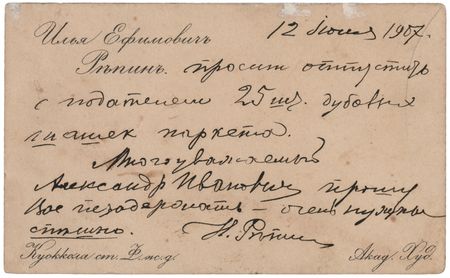 Илья Ефимовичъ 12 июня 1907.
Рѣпинъ. просит отпустить
с подателем 25 шт. дубовых
шашек паркета.
Многоуважаемый
Александр Иванович, прошу
Вас не задержать – очень нужно
спешно. И. Репин
Куоккола ст. Ф. ж. д. Акад. Худ.